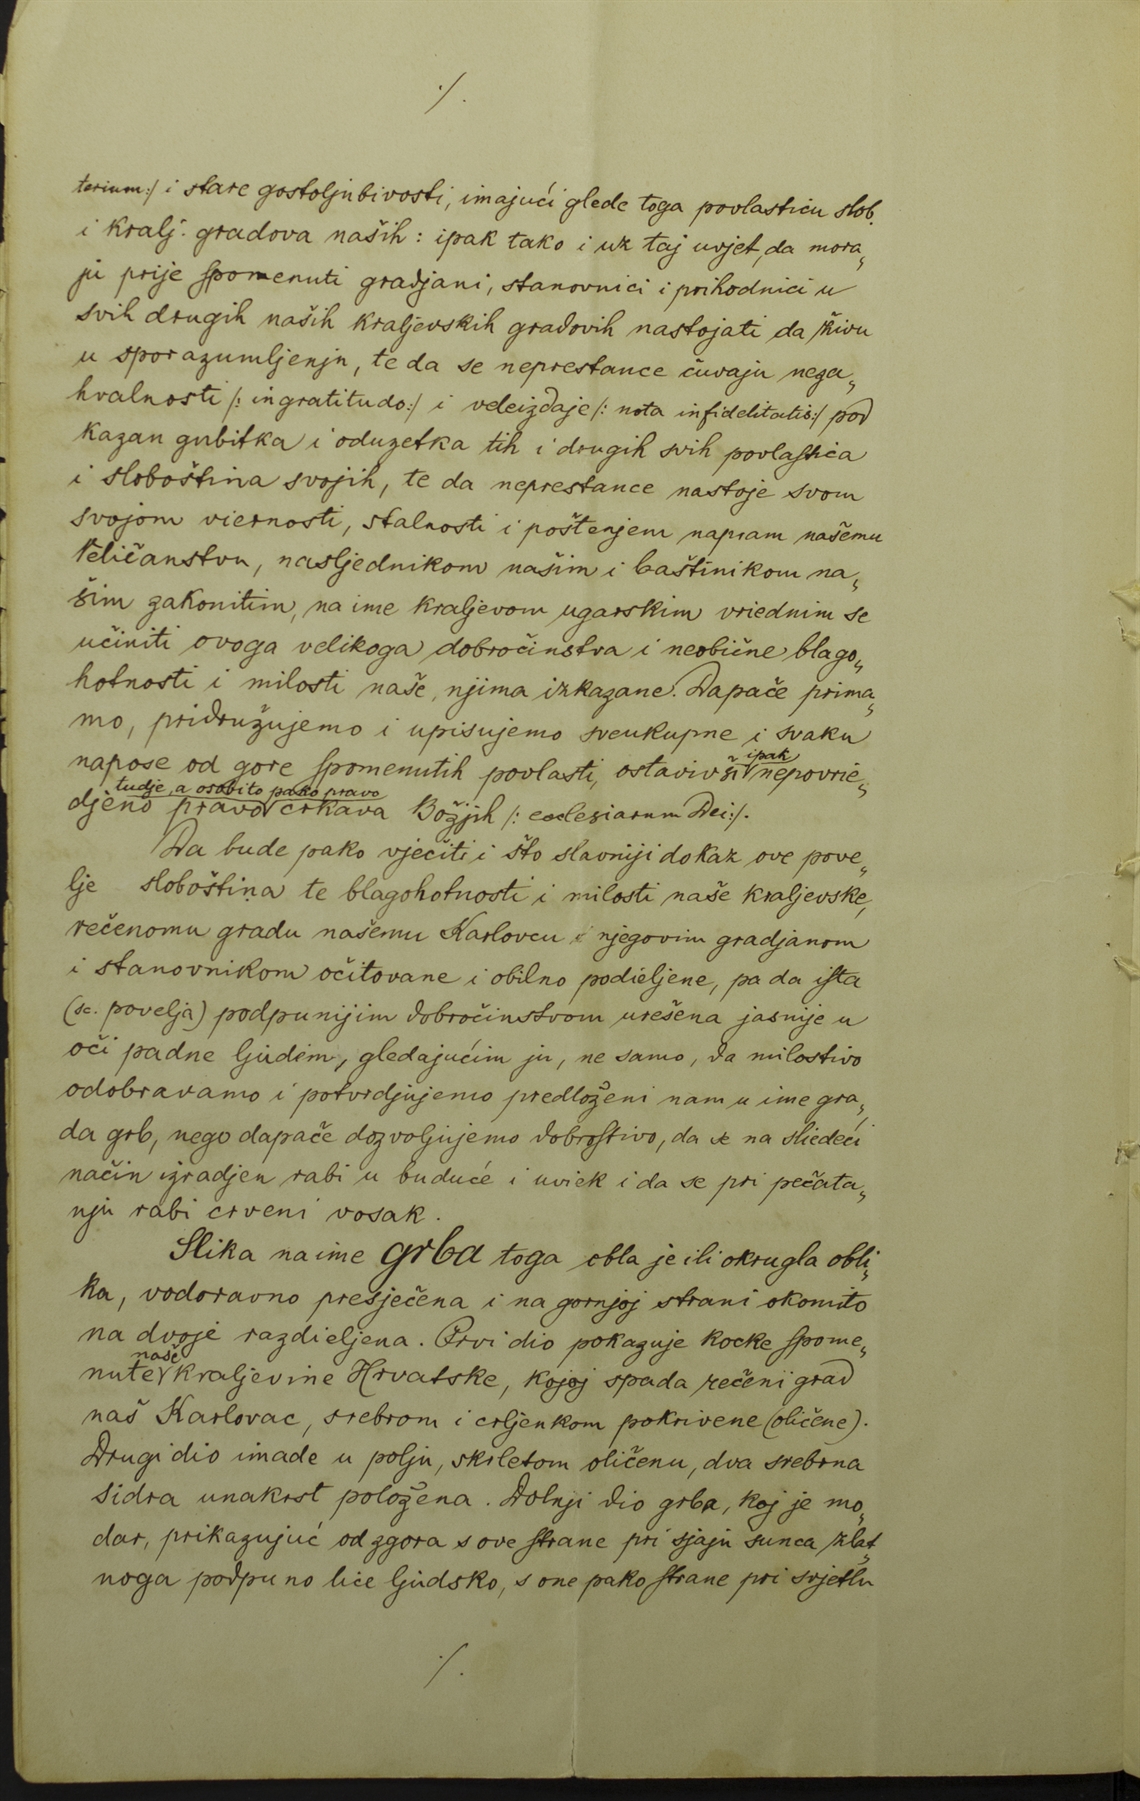 ./.
terium:/ i stare gostoljubivosti, imajući glede toga povlasticu slob.
i kralj. gradova naših: ipak tako i uz taj uvjet, da mora„
ju prije spomenuti gradjani, stanovnici i prihodnici u
svih drugih naših kraljevskih gradovih nastojati da živu
u sporazumljenju, te da se neprestance čuvaju neza„
hvalnosti /: ingratitudo:/ i veleizdaje /: nota infidelitatis:/ pod
kazan gubitka i oduzetka tih i drugih svih povlastica
i sloboština svojih, te da neprestance nastoje svom
svojom viernosti, stalnosti i poštenjem napram našemu
Veličanstvu, nasljednikom našim i baštinikom na„
šim zakonitim, na ime kraljevom ugarskim vriednim se
učiniti ovoga velikoga dobročinstva i neobične blago„
hotnosti i milosti naše, njima izkazane. Dapače prima„
mo, pridružujemo i upisujemo sveukupne i svaku
napose od gore spomenutih povlasti, ostavivši ipak nepovrie„
djeno pravo tudje, a osobito pako pravo crkava Božjih /: ecclesiarum Dei:/.
Da bude pako vječiti i što slavniji dokaz ove pove„
lje sloboština te blagohotnosti i milosti naše kraljevske,
rečenomu gradu našemu Karlovcu i njegovim gradjanom
i stanovnikom očitovane i obilno podieljene, pa da ista
(sc. povelja) podpunijim dobročinstvom urešena jasnije u
oči padne ljudem, gledajućim ju, ne samo, da milostivo
odobravamo i potvrdjujemo predloženi nam u ime gra„
da grb, nego dapače dozvoljujemo dobrostivo, da se na sliedeći
način izradjen rabi u buduće i uviek i da se pri pečata„
nju rabi crveni vosak.
Slika naime grba toga obla je ili okrugla obli„
ka, vodoravno presječena i na gornjoj strani okomito
na dvoje razdieljena. Prvi dio pokazuje kocke spome„
nute naše kraljevine Hrvatske, kojoj spada rečeni grad
naš Karlovac, srebrom i crljenkom pokrivene (oličene).
Drugi dio imade u polju, skrletom oličenu, dva srebrna
sidra unakrst položena. Dolnji dio grba, koj je mo„
dar, prikazujuć od zgora s ove strane pri sjaju sunca zlat„
noga podpuno lice ljudsko, s one pako strane pri svjetlu
./.